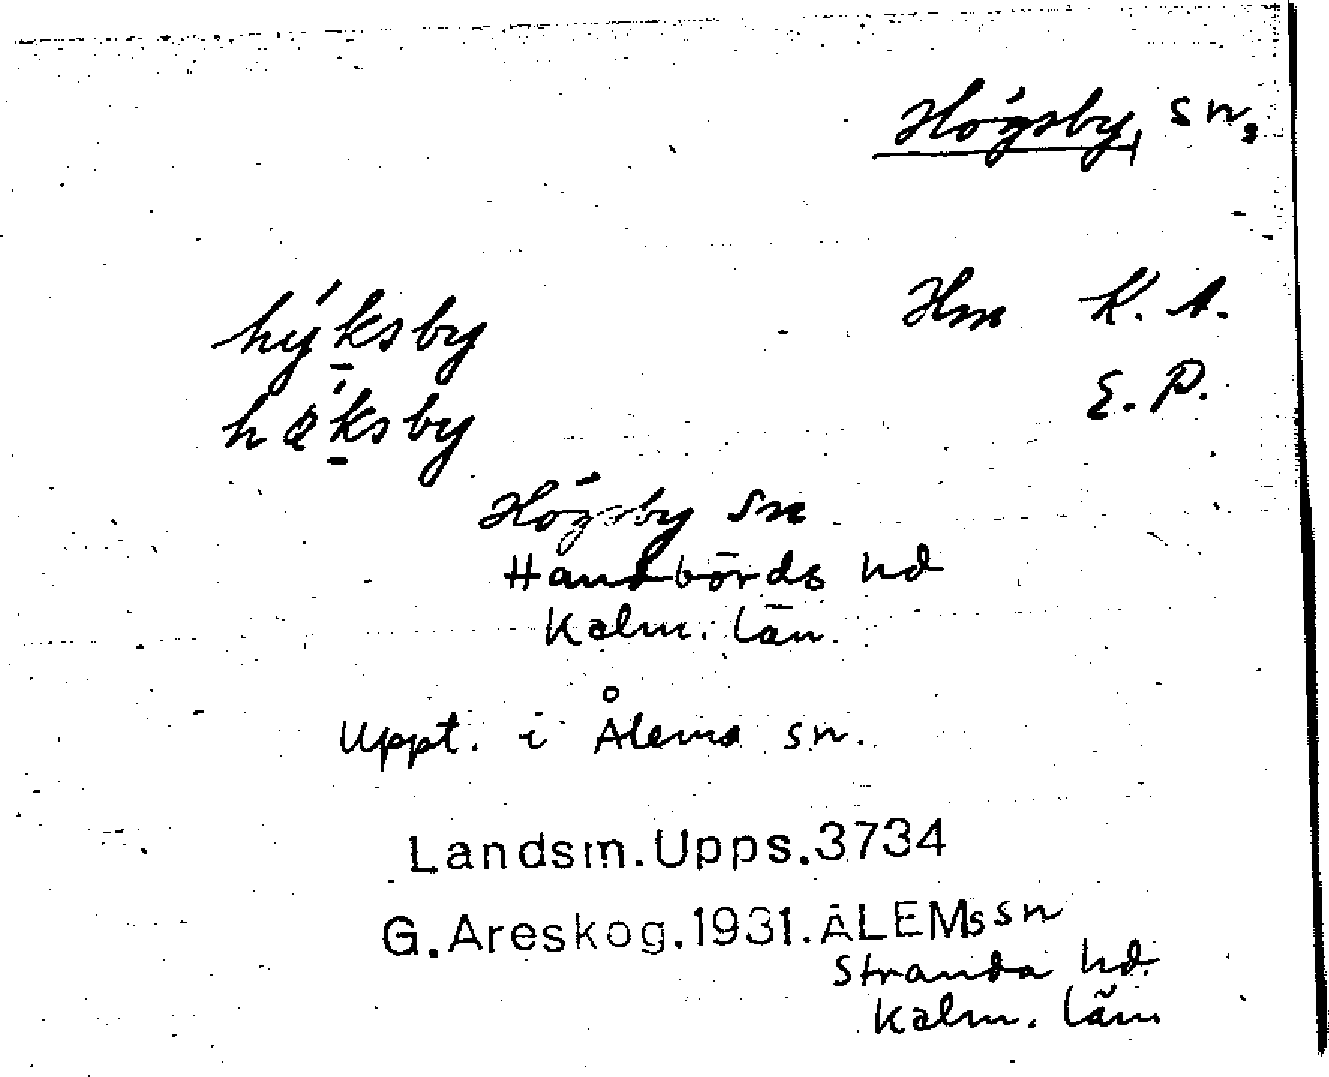 Högsby, sn.
hýksby Hm K. A.
høksby E. P.
Högsby Sn
Handbörds hd
Kalm. län.
Uppt. i Ålems sn.
Landsm.Upps.3734
G.Areskog.1931.ÅLEMs sn
Stranda hd.
Kalm. län